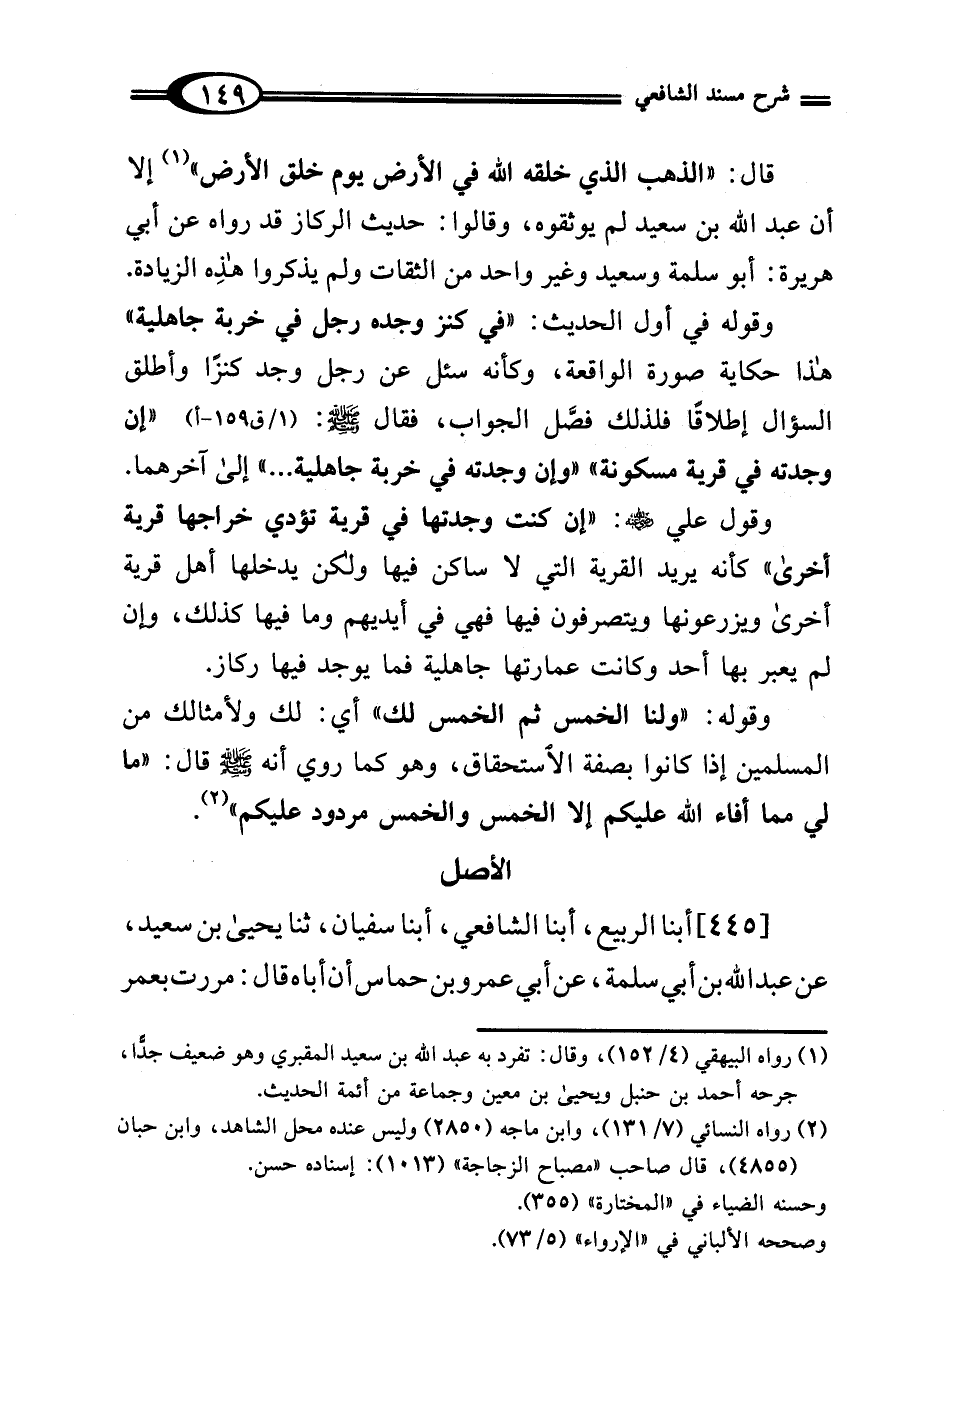 شرح مسند الشافعي
١٤٩
قال: «الذهب الذي خلقه الله في الأرض يوم خلق الأرض»(١) إلا
أن عبد الله بن سعيد لم يوثقوه، وقالوا: حديث الركاز قد رواه عن أبي
هريرة: أبو سلمة وسعيد وغير واحد من الثقات ولم يذكروا هذِه الزيادة.
وقوله في أول الحديث: «في كنز وجده رجل في خربة جاهلية»
هذا حكاية صورة الواقعة، وكأنه سئل عن رجل وجد كنزًا وأطلق
السؤال إطلاقًا فلذلك فصَّل الجواب، فقال ﷺ: (١/ق١٥٩-أ) «إن
وجدته في قرية مسكونة» «وإن وجدته في خربة جاهلية...» إلىٰ آخرهما.
وقول علي رضي الله عنه: «إن كنت وجدتها في قرية تؤدي خراجها قرية
أخرىٰ» كأنه يريد القرية التي لا ساكن فيها ولكن يدخلها أهل قرية
أخرىٰ ويزرعونها ويتصرفون فيها فهي في أيديهم وما فيها كذلك، وإن
لم يعبر بها أحد وكانت عمارتها جاهلية فما يوجد فيها ركاز.
وقوله: «ولنا الخمس ثم الخمس لك» أي: لك ولأمثالك من
المسلمين إذا كانوا بصفة الأستحقاق، وهو كما روي أنه ﷺ قال: «ما
لي مما أفاء الله عليكم إلا الخمس والخمس مردود عليكم»(٢).
الأصل
[٤٤٥] أبنا الربيع، أبنا الشافعي، أبنا سفيان، ثنا يحيىٰ بن سعيد،
عن عبد الله بن أبي سلمة، عن أبي عمرو بن حماس أن أباه قال: مررت بعمر
(١) رواه البيهقي (٤/ ١٥٢)، وقال: تفرد به عبد الله بن سعيد المقبري وهو ضعيف جدًّا،
جرحه أحمد بن حنبل ويحيىٰ بن معين وجماعة من أئمة الحديث.
(٢) رواه النسائي (٧/ ١٣١)، وابن ماجه (٢٨٥٠) وليس عنده محل الشاهد، وابن حبان
(٤٨٥٥)، قال صاحب «مصباح الزجاجة» (١٠١٣): إسناده حسن.
وحسنه الضياء في «المختارة» (٣٥٥).
وصححه الألباني في «الإرواء» (٥/ ٧٣).